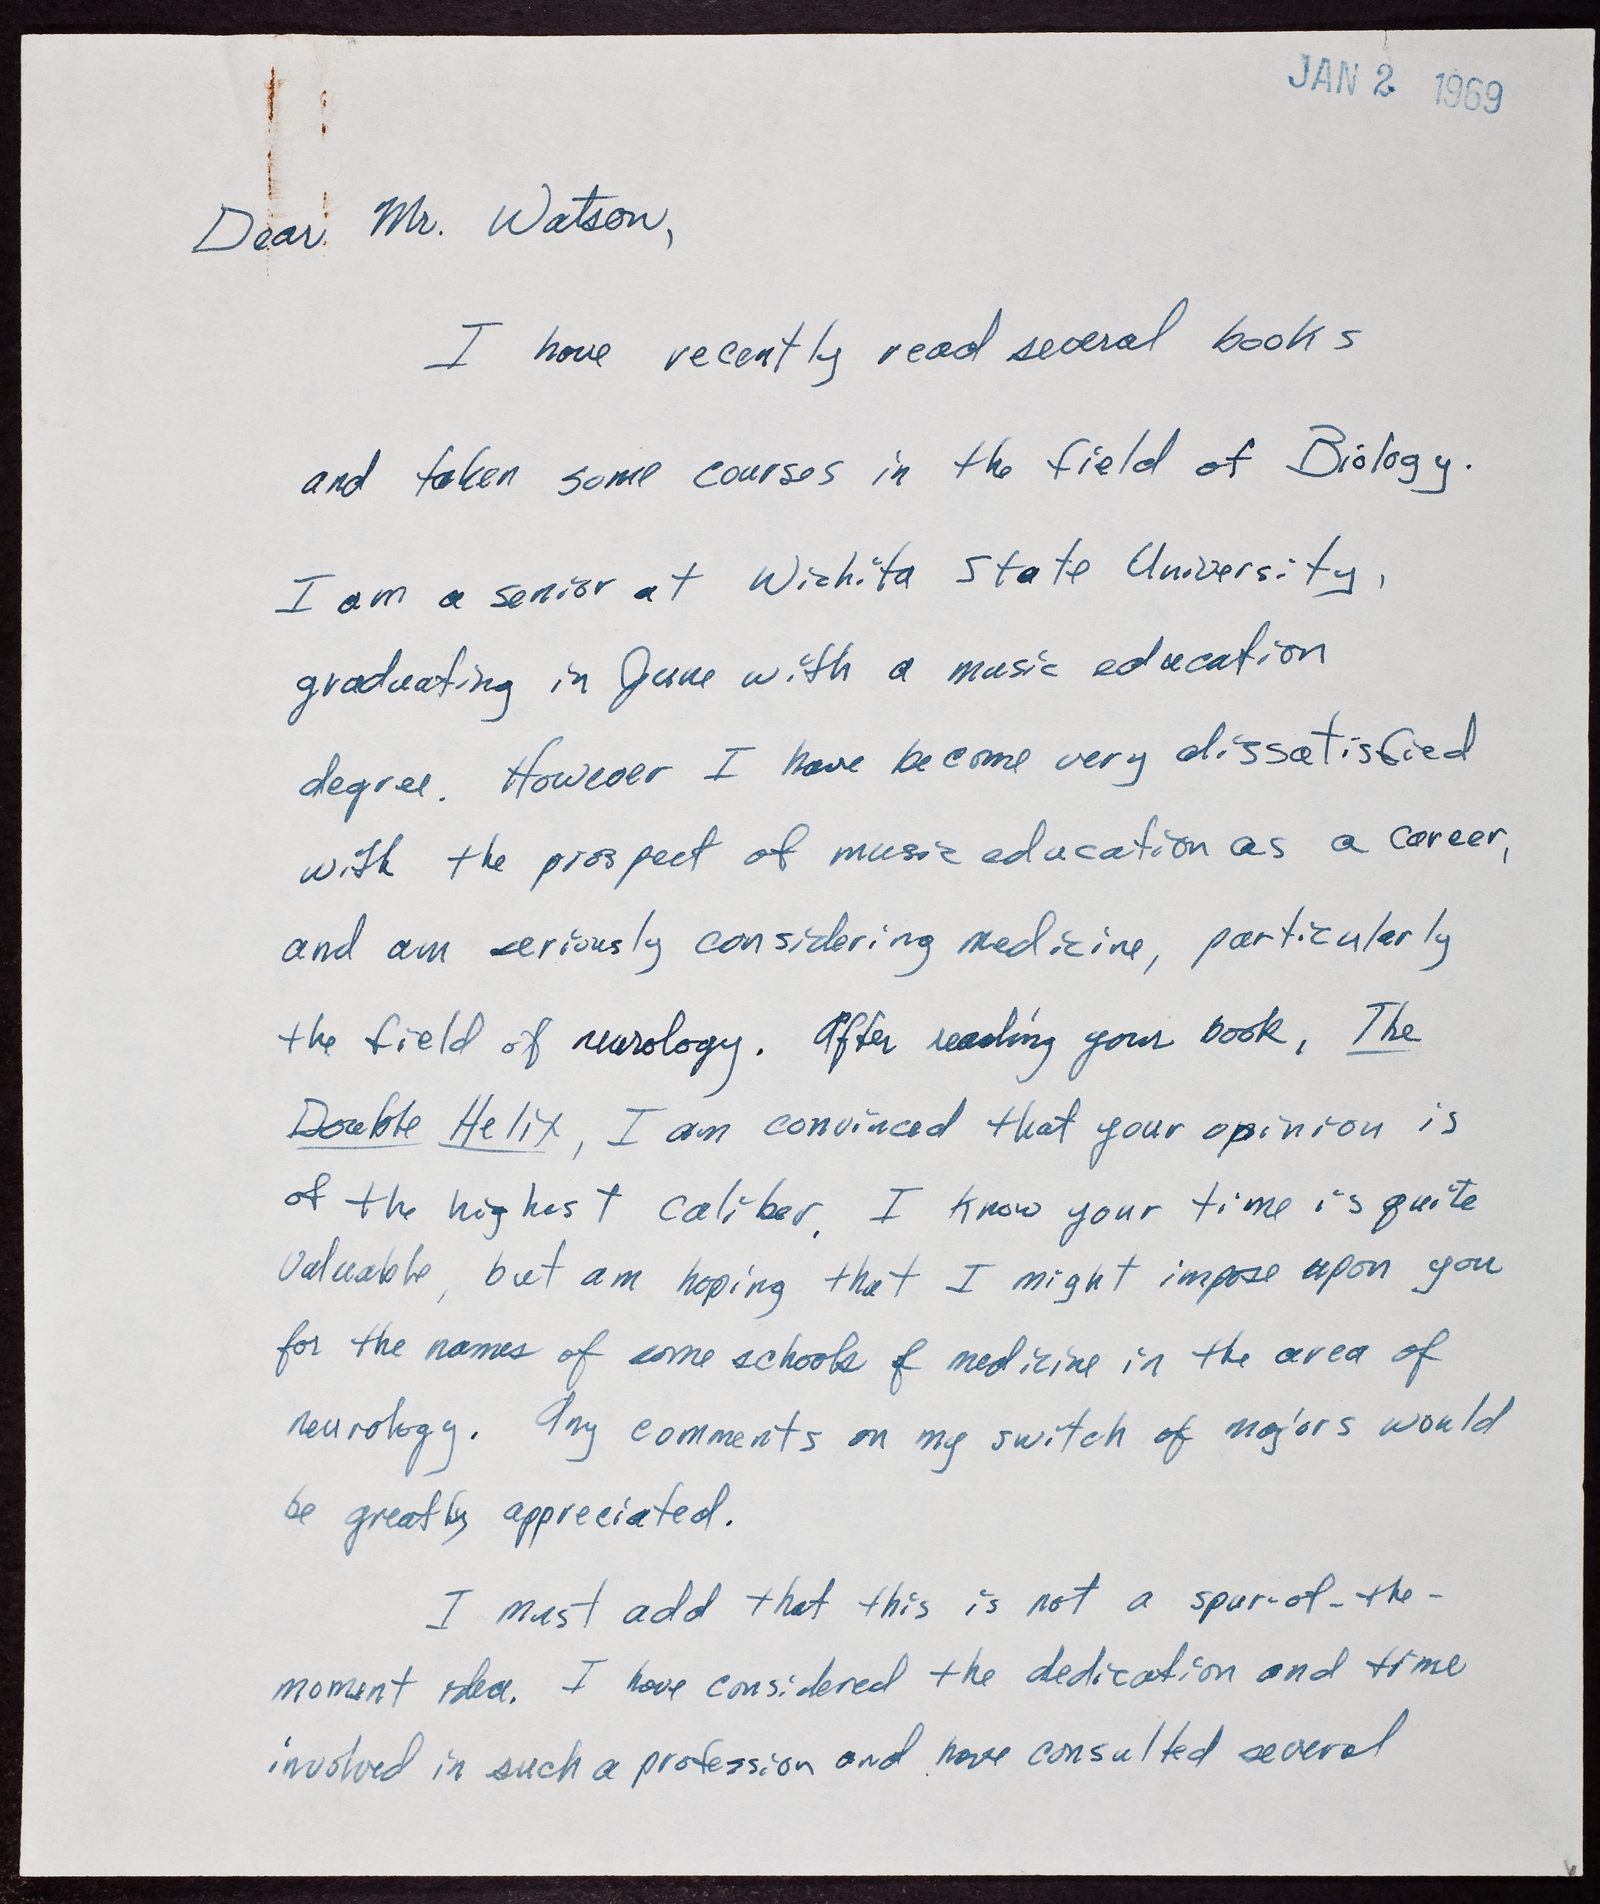 JAN 2 1969
Dear Mr. Watson,
I have recently read several books
and taken some courses in the field of Biology.
I am a senior at Wichita State University,
graduating in June with a music education
degree. However I have become very dissatisfied
with the prospect of music education as a career,
and am seriously considering medicine, particularly
the field of neurology. After reading your book, The
Double Helix, I am convinced that your opinion is
of the highest caliber. I know your time is quite
valuable, but am hoping that I might impose upon you
for the names of some schools of medicine in the area of
neurology. Any comments on my switch of majors would
be greatly appreciated.
I must add that this is not a spur-of-the-
moment idea. I have considered the dedication and time
involved in such a profession and have consulted several